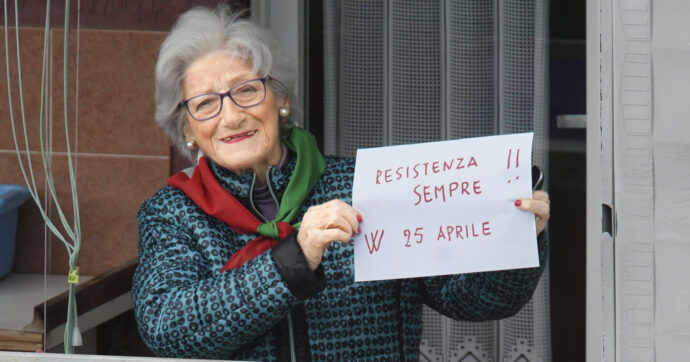 RESISTENZA !!
SEMPRE
W 25 APRILE